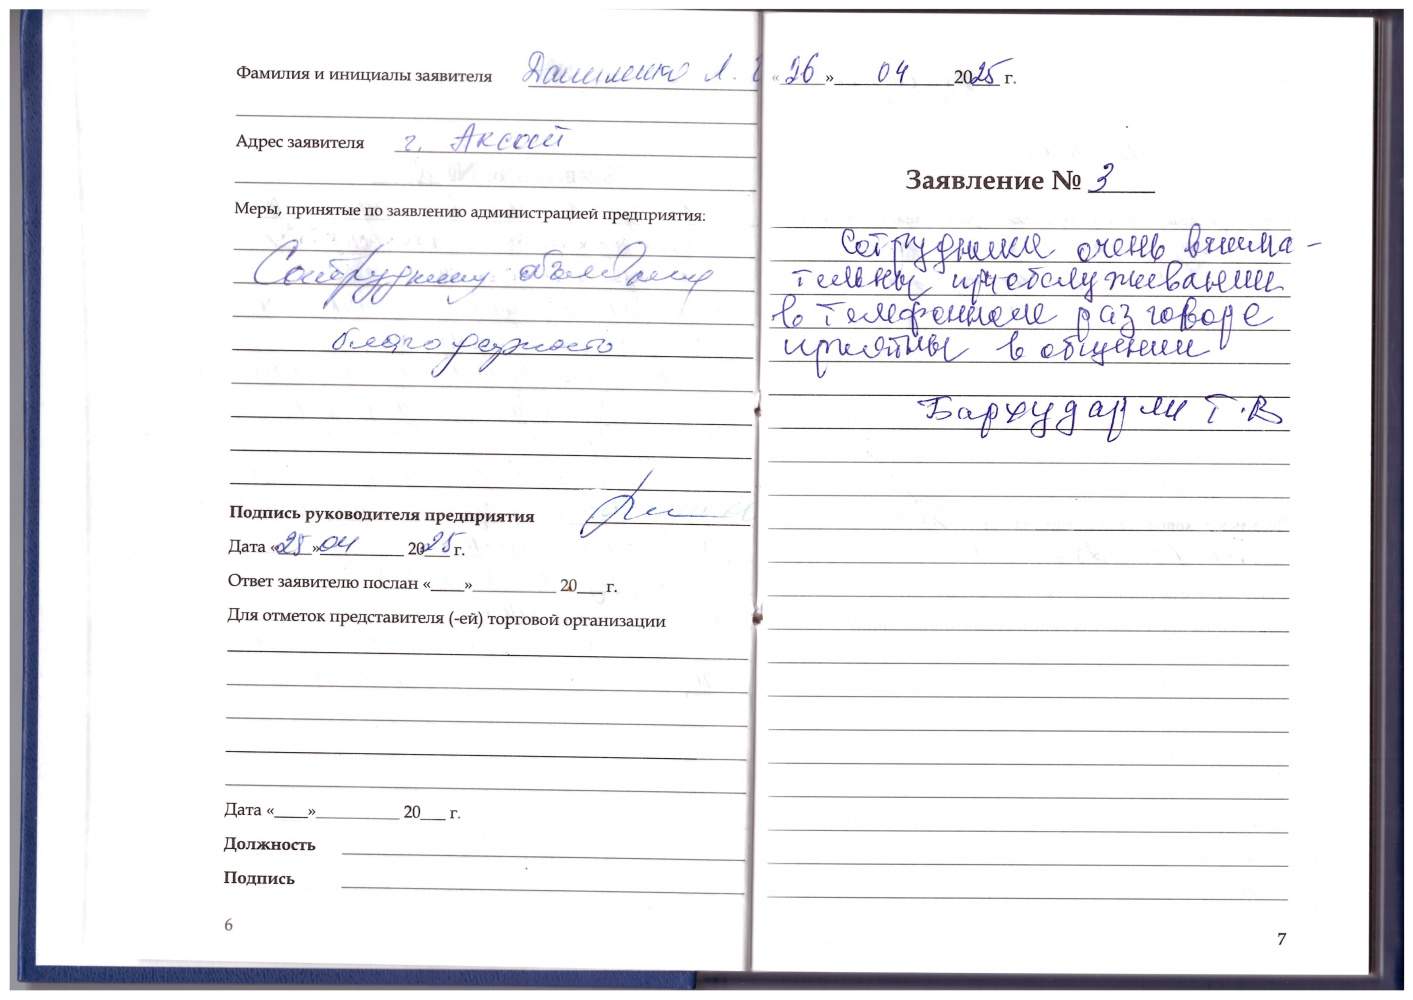 Фамилия и инициалы заявителя Даниленко Л.
Адрес заявителя г. Аксай
Меры, принятые по заявлению администрацией предприятия:
Сотруднику объявлена
благодарность
Подпись руководителя предприятия
Дата «25» 04 2025 г.
Ответ заявителю послан «____»__________ 20___ г.
Для отметок представителя (-ей) торговой организации
Дата «____»_____________ 20___ г.
Должность
Подпись
6
«26» 04 2025 г.
Заявление № 3
Сотрудники очень внима-
тельны при обслуживании
в телефонном разговоре
приятны в общении
Бархударян Т.В
7